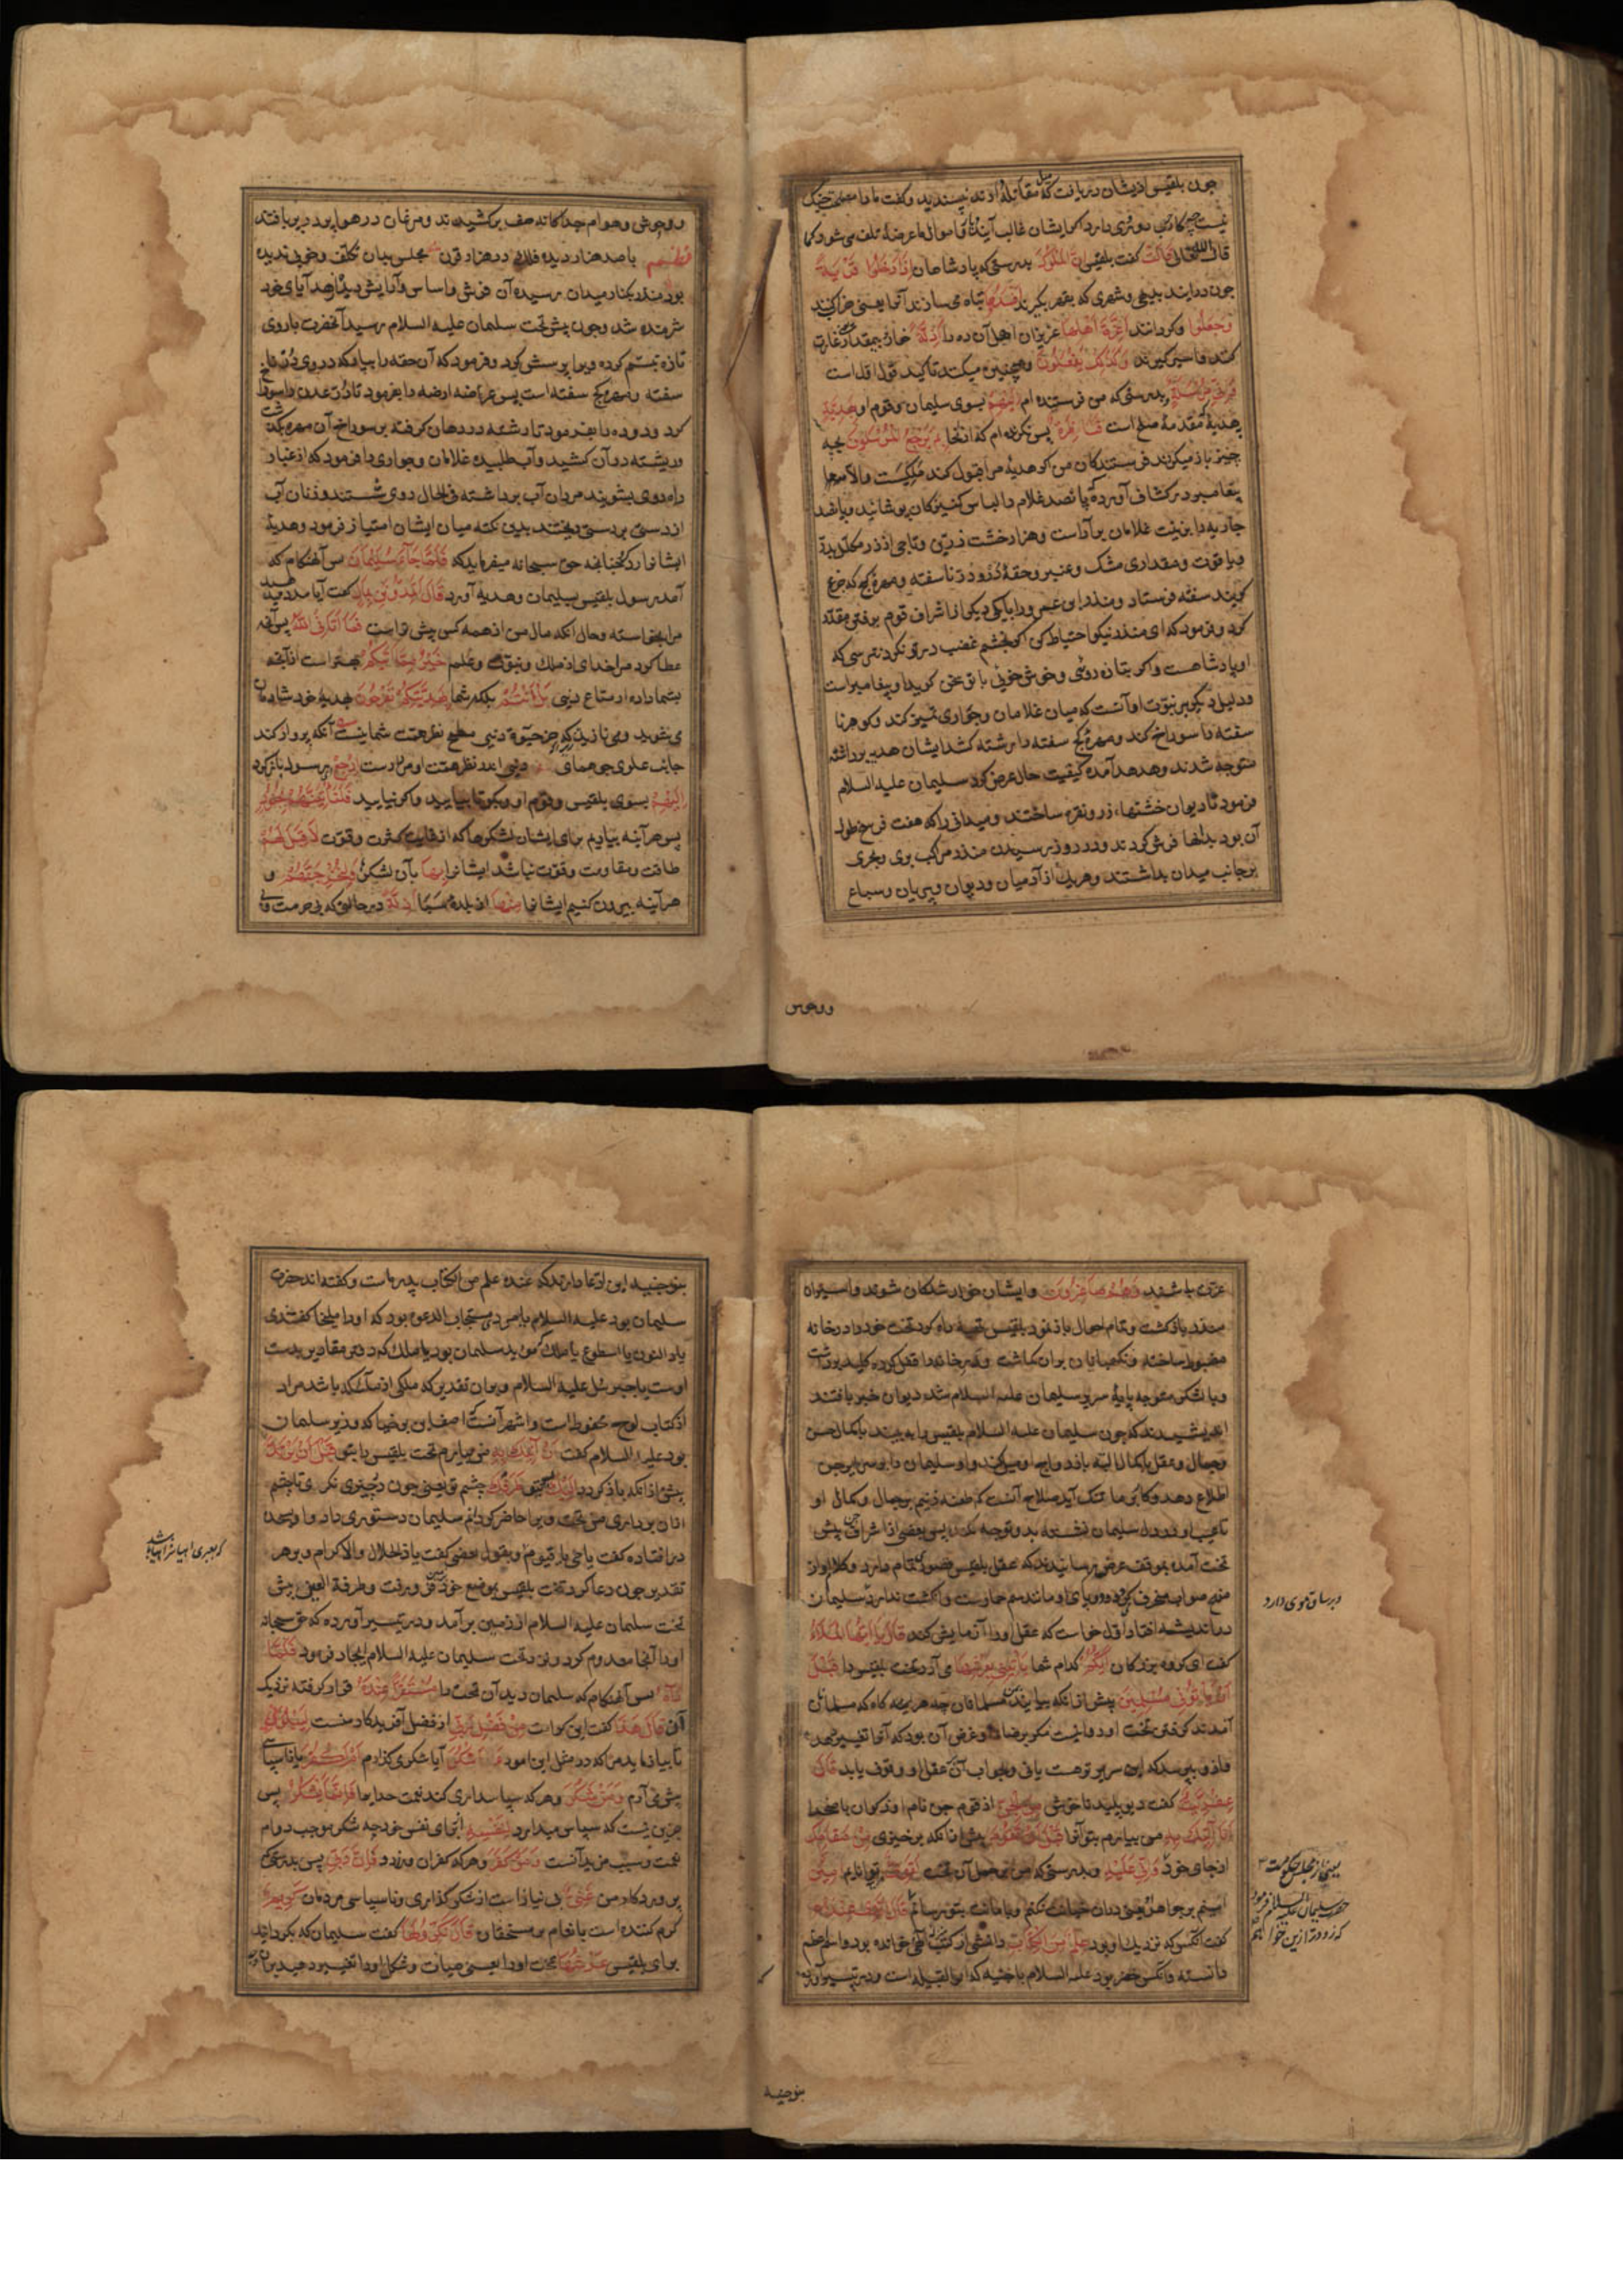 چون بلقیس ازیشان دریافت که میل مقاتله دارند نپسندید و گفت ما را مصلحت جنگ
نیست چه کار حرب دو روی دارد اگر ایشان غالب آیند دیار و اموال ما عرضهٔ تلف می شود کما
قال الله تعالی قَالَتْ گفت بلقیس اِنَّ الْمُلُوكَ بدرستی که پادشاهان اِذَا دَخَلُوا قَرْيَةً
چون درایند بدیهی و شهری که بقهر بگیرند اَفْسَدُوهَا تباه می سازند آنرا یعنی خراب کنند
وَجَعَلُوا و گردانند اَعِزَّةَ اَهْلِهَا عزیزان اهل آن ده را اَذِلَّةً خار و بیمقدار غارت
کنند و اسیر گیرند وَكَذٰلِكَ يَفْعَلُونَ و همچنین میکنند تاکید قول اول است
وَاِنِّي مُرْسِلَةٌ و بدرستی که من فرستنده ام اِلَيْهِمْ بسوی سلیمان و قوم او بِهَدِيَّةٍ
هدیهٔ که مقدمهٔ صلح است فَنَاظِرَةٌ پس نگرنده ام که از آنجا بِمَ يَرْجِعُ الْمُرْسَلُونَ بچه
چیز باز میگردند فرستندگان من اگر هدیهٔ مرا قبول کند ملکیست والا
پیغامبر و در کشاف آورده پانصد غلام را لباس کنیزکان پوشانید و پانصد
جاریه را بزینت غلامان برآراست و هزار خشت زرین و تاجی از زر مکلل بدر
و یاقوت و مقداری مشک و عنبر و حقهٔ درو در ناسفته و مهرهٔ کج که جزع
گویند سفته فرستاد و منذر ابن عمرو را با یکی دیگر از اشراف قوم برفتن مقرر
کرد و فرمود که ای منذر نیکو احتیاط کن اگر بخشم غضب در تو نگرد نترسی که
او پادشاهست و اگر بتازه روئی و خوش خوئی با تو سخن گوید او پیغامبر است
و دلیل دیگر بر نبوت او آنست که میان غلامان و جواری تمیز کند و گوهر نا
سفته را سوراخ کند و مهرهٔ کج سفته را برشته کشد ایشان هدیه برداشته
متوجه شدند و هدهد آمده کیفیت حال عرض کرد سلیمان علیه السلام
فرمود تا دیوان خشتها از زر و نقره ساختند و میدانی را که هفت فرسخ طول
آن بود بدانها فرش کردند و در روز رسیدن منذر مراکب بری و بحری
بر جانب میدان بداشتند و هر یک از آدمیان و دیوان و پریان و سباع
و وحوش
و وحوش و هوام جداگانه صف برکشیدند و مرغان در هوا پر در پر بافتند
با صد هزار دیده فلک در هزار قرن مجلس بدان تکلف و خوبی ندیده
بود منذر بکنار میدان رسیده آن فرش و اساس و آرایش دید از هدایای خود
شرمنده شد و چون پیش تخت سلمان علیه السلام رسید آنحضرت با روی
تازه تبسم کرده ویرا پرسش کرد و فرمود که آن حقه را بیار که در وی در نا
سفته و مهرهٔ کج سفته است پس عرضه ارضه را بفرمود تا در عدن را سوراخ
کرد و دوده را بفرمود تا رشته در دهان گرفته بر سوراخ آن مهره بگذشت
و ریشته در آن کشید و آب طلبیده غلامان و جواری را فرمود که از غبار
راه روی بشویند مردان آب برداشته فی الحال روی شستند و زنان آب
از دستی بر دستی ریختند بدین نکته میان ایشان امتیاز فرمود و هدیهٔ
ایشانرا رد کرد چنانچه حق سبحانه میفرماید که فَلَمَّا جَآءَ سُلَيْمَانَ پس آنهنگام که
آمد رسول بلقیس بسلیمان و هدیه آورد قَالَ اَتُمِدُّونَنِ بِمَالٍ گفت آیا مدد میدهید
مرا بخواسته و حال آنکه مال من از همه کس بیش تر است فَمَا اٰتَانِيَ اللهُ پس آنچه
عطا کرد مرا خدای از ملک و نبوت و علم خَيْرٌ مِمَّا اٰتٰيكُمْ بهتر است از آنچه
بشما داده از متاع دنیی بَلْ اَنْتُمْ بلکه شما بِهَدِيَّتِكُمْ تَفْرَحُونَ بهدیهٔ خود شادمان
می شوید و می نازید که جز حیوة دنیی مطمح نظر همت شما نیست آنکه پرواز کند
جانب علوی چو همای دنیی اندر نظر همت او مردارست اِرْجِعْ ای رسول بازگرد
اِلَيْهِمْ بسوی بلقیس و قوم او و بگو تا بیایید و اگر نیایید فَلَنَأْتِيَنَّهُمْ بِجُنُودٍ
پس هر آینه بیاریم برای ایشان لشکرها که از غایت کثرت و قوت لَا قِبَلَ لَهُمْ
طاقت و مقاومت و قوت نباشد ایشانرا بِهَا بآن لشکر وَلَنُخْرِجَنَّهُمْ و
هر آینه بیرون کنیم ایشانرا مِنْهَا از بلدهٔ سبا اَذِلَّةً در حالتی که بی حرمت و بی
عزت باشند وَهُمْ صَاغِرُونَ و ایشان خوار شدگان شوند و اسیران
منذر بازگشت و تمام احوال باز نمود بلقیس تهیه راه کرد تخت خود را در خانه
مضبوط ساخته و نگهبانان بران گماشت و در خانه را قفل کرده کلید برداشت
و با لشکر متوجه پایهٔ سریر سلیمان علیه السلام شد دیوان خبر یافتند
اندیشیدند که چون سلیمان علیه السلام بلقیس را به بیند با کمال حسن
و جمال و عقل با کمال البته بازدواج او میل کند و او سلیمان را بر سرایر جن
اطلاع دهد و کار بر ما تنک آید صلاح آنست که طعنه زنیم بر جمال و کمال او
تا عیب او در دل سلیمان نشسته بدو توجه نکند پس بعضی از اشراف جن پیش
تخت آمده بموقف عرض رسانیدند که عقل بلقیس قصور تمام دارد و کلام او از
منهج صواب منحرف بوده و پای او مانند سم حمارست و انگشت ندارد سلیمان
در اندیشه افتاد اول خواست که عقل او را آزمایش کند قَالَ يَا اَيُّهَا الْمَلَاءُ
گفت ای گروه بزرگان اَيُّكُمْ کدام شما يَأْتِينِي بِعَرْشِهَا می آرد تخت بلقیس را قَبْلَ
اَنْ يَأْتُونِي مُسْلِمِينَ پیش از آنکه بیایند بمن مسلمانان چه هر آینه گاه که مسلمان
آمدند گرفتن تخت او روا نیست مگر برضا و غرض آن بود که آنرا تغییر دهد
و ازو بپرسد که این سریر تو هست یا نی و بجواب آن عقل او وقوف یابد قَالَ
عِفْرِيتٌ گفت دیو پلید ناخوش مِنَ الْجِنِّ از قوم جن نام او ذکوان یا صخر
اَنَا اٰتِيكَ بِهِ من بیارم بتو آنرا قَبْلَ اَنْ تَقُومَ پیش از آنکه برخیزی مِنْ مَقَامِكَ
از جای خود وَاِنِّي عَلَيْهِ و بدرستی که من بر حمل آن تخت لَقَوِيٌّ توانا ام اَمِينٌ
امینم بر جواهر یعنی دران خیانت نکنم و با امانت بتو رسانم قَالَ الَّذِي عِنْدَهُ
گفت آنکس که نزدیک او بود عِلْمٌ مِنَ الْكِتَابِ دانشی از کتب الهی خوانده بود و اسم اعظم
دانسته و آنکس خضر بود علیه السلام یا ضبه که ابو القبیله است و در تیسیر آورده
در ساق موی دارد
یعنی از مجلس حکومت
حضرت سلیمان علیه السلام فرمود
که زودتر ازین خواهم
بنو ضبه
بنو ضبه این ادعا دارند که عنده علم من الکتاب پدر ماست و گفته اند حضرت
سلیمان بود علیه السلام یا مردی مستجاب الدعوه بود که او را ملیخا گفتندی
یا ذالنون یا اسطوع یا ملک مؤید سلیمان بود یا ملک که دفتر مقادیر بدست
اوست یا جبرئیل علیه السلام و بران تقدیر که ملکی از ملائکه باشد مراد
از کتاب لوح محفوظ است و اشهر آنست که آصف ابن برخیا که وزیر سلمان
بود علیه السلام گفت اَنَا اٰتِيكَ بِهِ من بیارم تخت بلقیس را بتو قَبْلَ اَنْ يَرْتَدَّ
پیش از آنکه باز گردد اِلَيْكَ بسوی تو طَرْفُكَ چشم تو یعنی چون در چیزی نگری تا چشم
ازان برداری من تخت ویرا حاضر گردانم سلیمان دستوری داد و او بسجده
در افتاده گفت یا حی یا قیوم و بقول بعضی گفت یا ذالجلال والاکرام و بر هر
تقدیر چون دعا کرد تخت بلقیس بموضع خود فرو رفت و طرفة العین پیش
تخت سلیمان علیه السلام از زمین برآمد و در تیسیر آورده که حق سبحانه
او را آنجا معدوم کرد و نزد تخت سلیمان علیه السلام ایجاد فرمود فَلَمَّا
رَاٰهُ پس آنهنگام که سلیمان دید آن تخت را مُسْتَقِرًّا عِنْدَهُ قرار گرفته نزدیک
آن قَالَ هٰذَا گفت این کرامت مِنْ فَضْلِ رَبِّي از فضل آفریدگار منست لِيَبْلُوَنِي
تا بیازماید مرا که در مثل این امور ءَاَشْكُرُ آیا شکر می گذارم اَمْ اَكْفُرُ یا ناسپاسی
پیش می آرم وَمَنْ شَكَرَ و هر که سپاسداری کند نعمت خدایرا فَاِنَّمَا يَشْكُرُ پس
جز این نیست که سپاس میدارد لِنَفْسِهِ برای نفس خود چه شکر موجب دوام
نعمت و سبب مزید آنست وَمَنْ كَفَرَ و هر که کفران ورزد فَاِنَّ رَبِّي پس بدرستی که
پروردگار من غَنِيٌّ بی نیاز است از شکر گذاری و ناسپاسی مردمان كَرِيمٌ
کرم کننده است بانعام بر مستحقان قَالَ نَكِّرُوا لَهَا گفت سلیمان که بگردانید
برای بلقیس عَرْشَهَا تخت او را یعنی هیات و شکل او را تغییر دهید